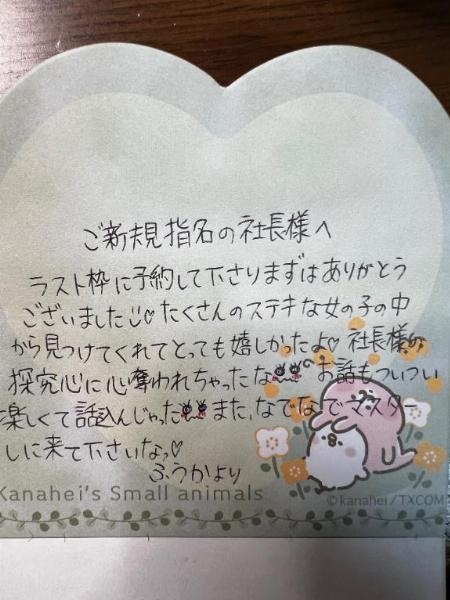 ご新規指名の社長様へ
ラスト枠に予約して下さりまずはありがとう
ございました♡たくさんのステキな女の子の中
から見つけてくれてとっても嬉しかったよ♡社長様の
探究心に心奪われちゃったな お話もついつい
楽しくて話込んじゃった また、なでなでマスター
しに来て下さいなっ♡
ふうかより
Kanahei's Small animals
©kanahei/TXCOM